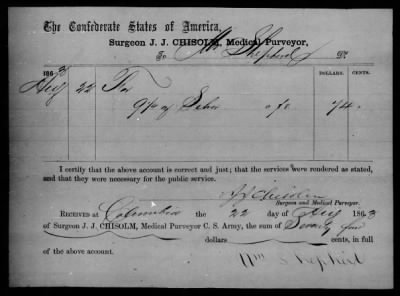 The Confederate States of America,
Surgeon J. J. CHISOLM, Medical Purveyor,
To Shepherd Dr.
1863 DOLLARS. CENTS.
Aug 22 For
74
I certify that the above account is correct and just; that the services were rendered as stated,
and that they were necessary for the public service.
J J Chisolm
Surgeon and Medical Purveyor.
RECEIVED AT Columbia the 22 day of Aug 1863
of Surgeon J. J. CHISOLM, Medical Purveyor C. S. Army, the sum of Seventy four
dollars cents, in full
of the above account.
Wm Shepherd